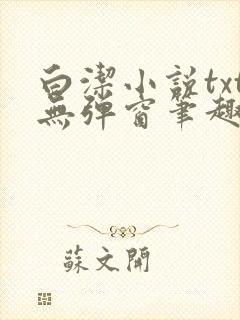 白潔小說txt
無彈窗筆趣
蘇文開